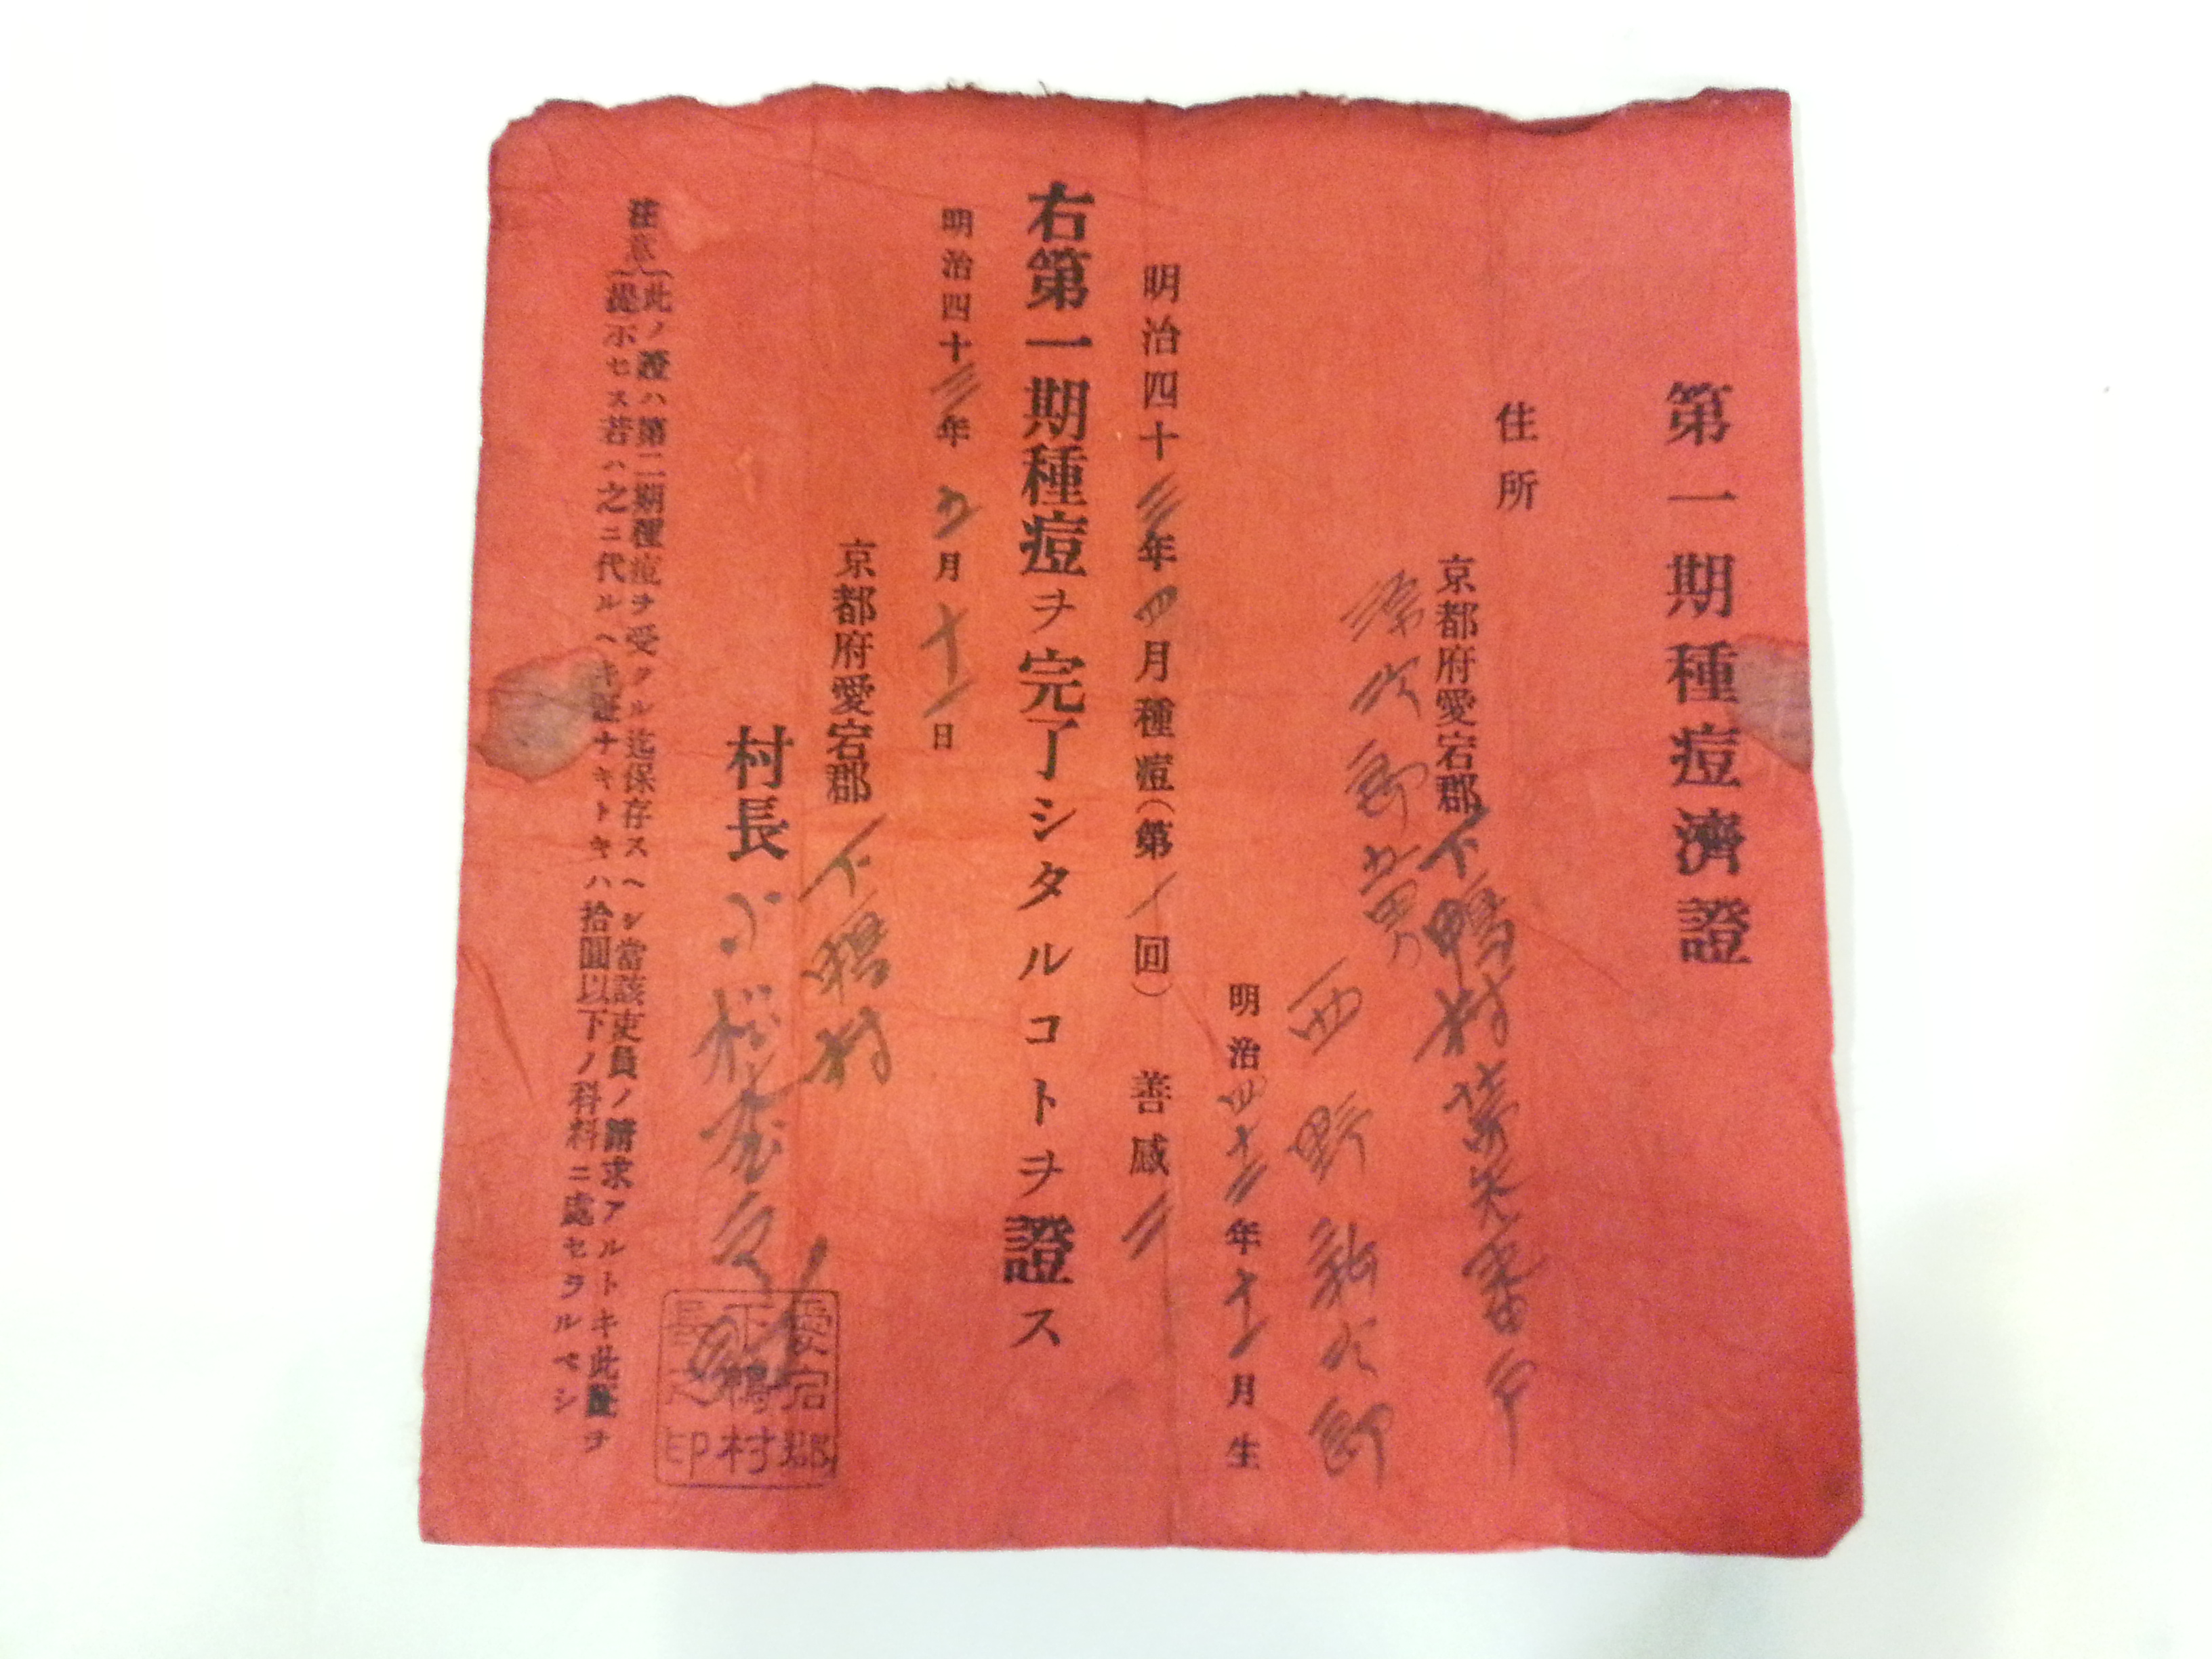 第一期種痘濟證
住所
京都府愛宕郡下鴨村
西野新次郎
明治四十二年十一月生
明治四十三年四月種痘(第一回)善感二
右第一期種痘ヲ完了シタルコトヲ證ス
明治四十三年五月十一日
京都府愛宕郡下鴨村
村長
愛宕郡
下鴨村
長之印
注意
此ノ證ハ第二期種痘ヲ受クル迄保存スヘシ當該吏員ノ請求アルトキ此證ヲ
提示セス若ハ之ニ代ルヘキ證ナキトキハ拾圓以下ノ科料ニ處セラルベシ